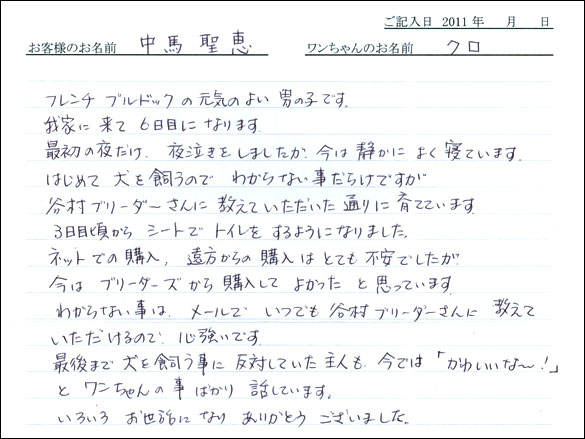 ご記入日 2011 年 月 日
お客様のお名前 中馬聖恵 ワンちゃんのお名前 クロ
フレンチ ブルドックの元気のよい 男の子です。
我家に来て 6日目になります。
最初の夜だけ、夜泣きをしましたが、今は静かに よく寝ています。
はじめて 犬を飼うので わからない事だらけですが
谷村ブリーダーさんに 教えていただいた通りに育てています。
3日目頃から シートで トイレを するようになりました。
ネットでの購入、遠方からの購入は とても 不安でしたが
今は ブリーダーズから購入して よかった と思っています。
わからない事は、メールで いつでも 谷村ブリーダーさんに 教えて
いただけるので、心強いです。
最後まで 犬を飼う事に 反対していた主人も、今では「かわいいな〜!」
と ワンちゃんの事ばかり 話しています。
いろいろ お世話になり ありがとう ございました。